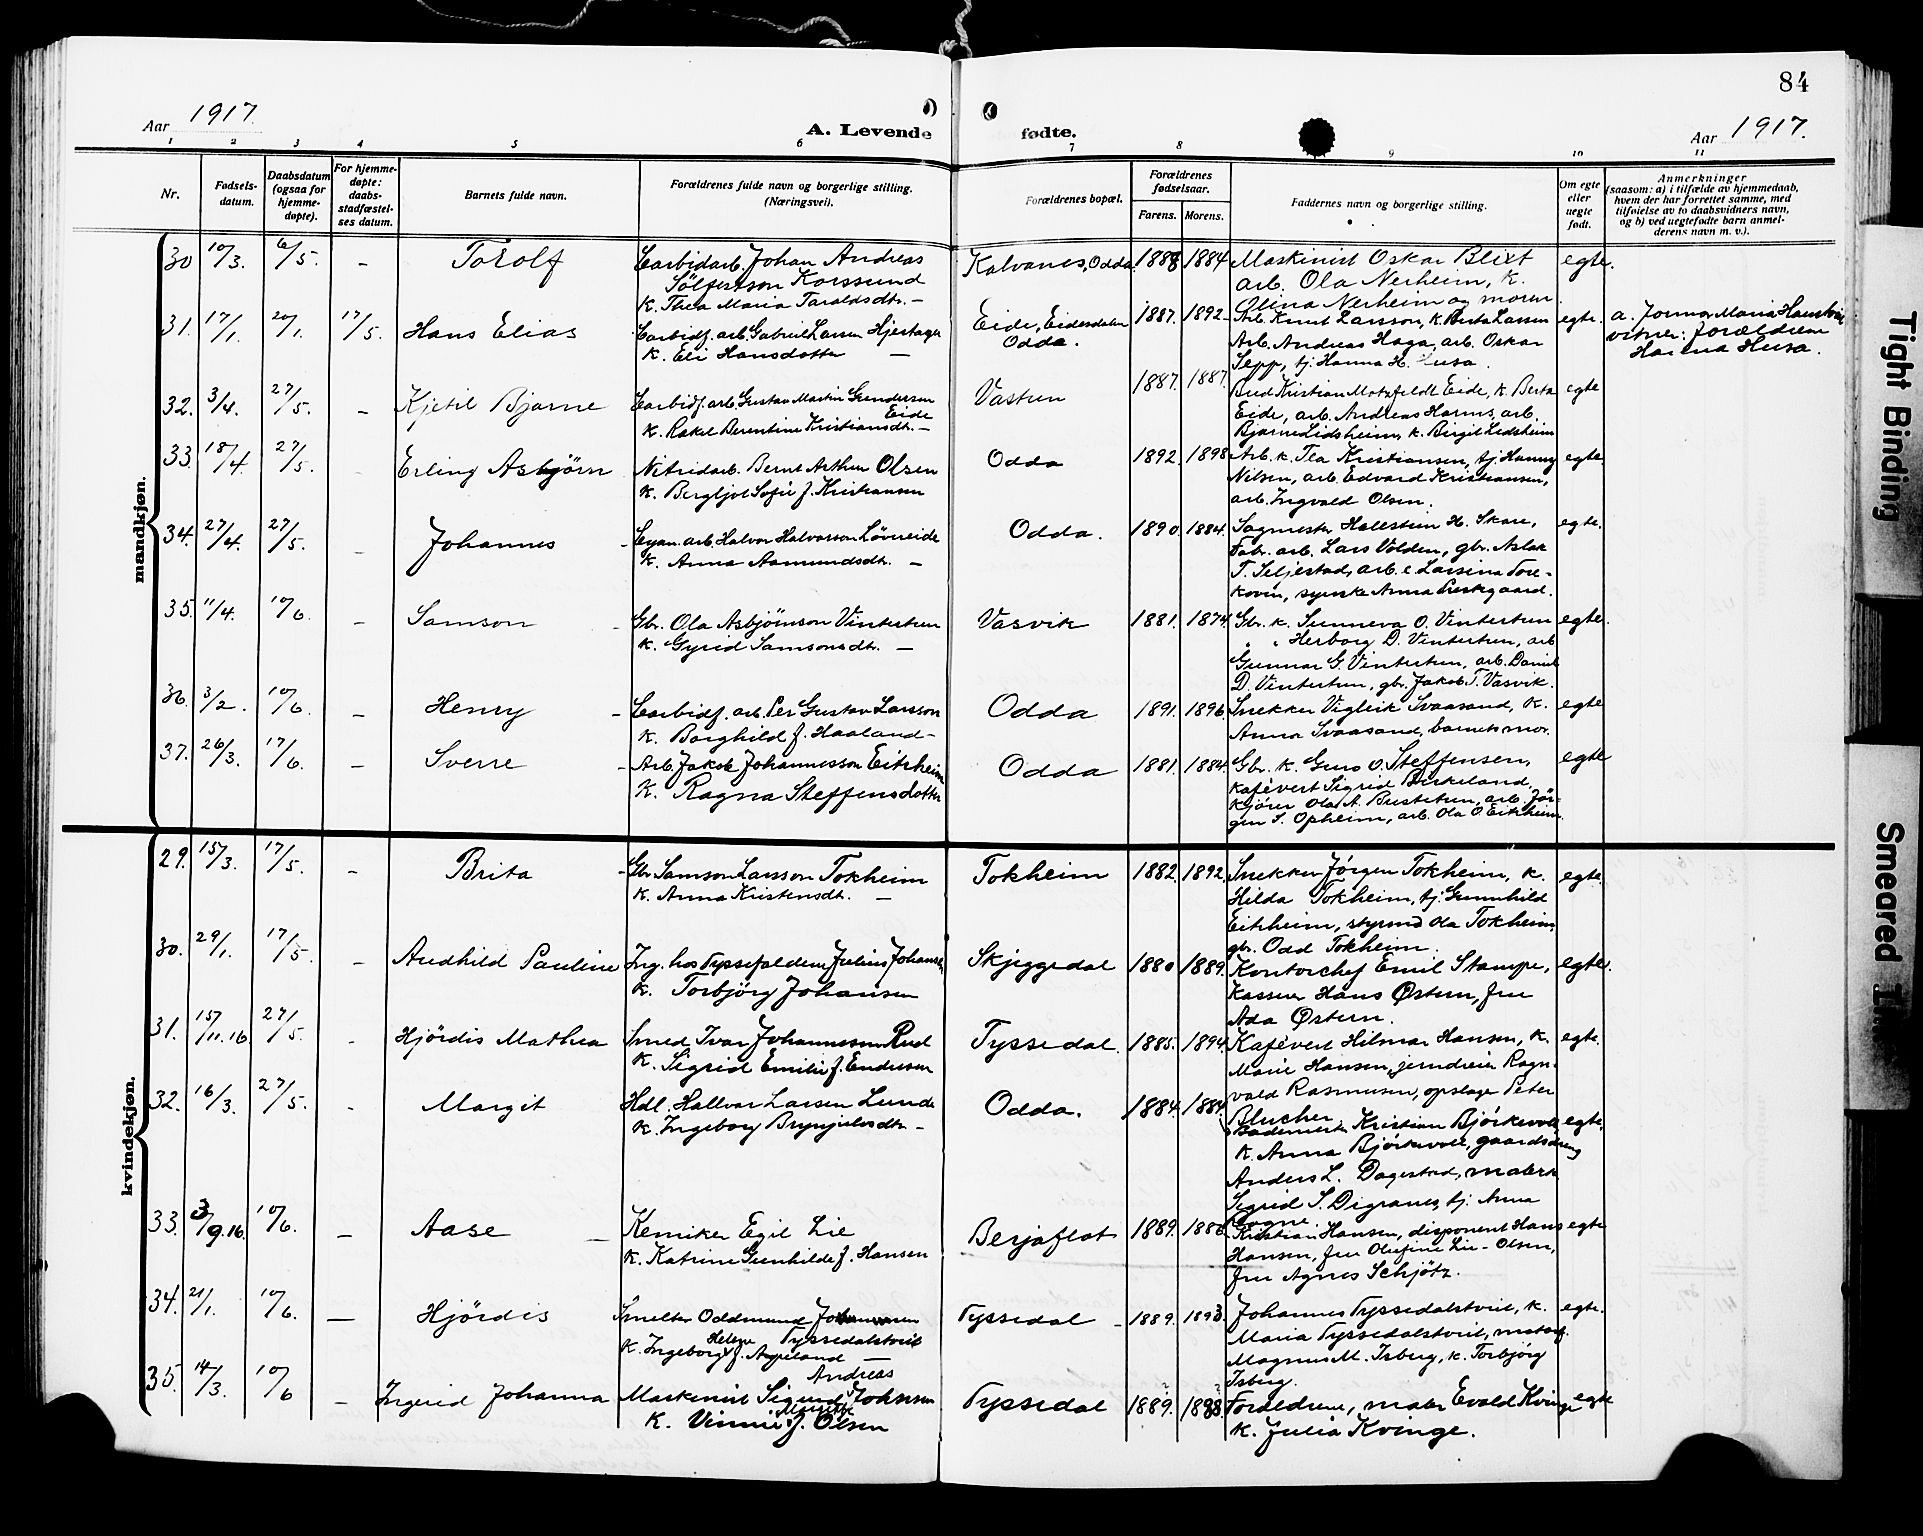 84
Aar 1917.
A. Levende fødte.
Aar 1917.
1 2 3 4 5 6 7 8 9 10 11
Nr.
Fødsels-
datum.
Daabsdatum
(ogsaa for
hjemme-
døpte).
For hjemme-
døpte:
daabs-
stadfæstel-
ses datum.
Barnets fulde navn.
Forældrenes fulde navn og borgerlige stilling.
(Næringsvei).
Forældrenes bopæl.
Forældrenes
fødselsaar.
Farens. Morens.
Faddernes navn og borgerlige stilling.
Om egte
eller
uegte
født.
Anmerkninger
(saasom: a) i tilfælde av hjemmedaab,
hvem der har forrettet samme, med
tilføielse av to daabsvidners navn,
og b) ved uegtefødte barn anmel-
derens navn m. v.).
mandkjøn.
30 10/3. 6/5. – Torolf Carbidarb. Johan Andreas Kalvanes, Odda. 1888 1884 Maskinist Oskar Blixt egte.
Sölfestson Korssund arb. Ola Nerheim, k.
k. Thea Maria Taraldsdtr. – Olina Nerheim og moren.
31. 17/1. 20/1. 17/5. Hans Elias Carbidf. arb. Gabriel Larsen Hjertager Eide, Eidesdalen 1887. 1892 Arb. Knut Larsson, k. Berta Larsen egte. a. Jormor Maria
k. Eli Hansdotter – Odda. Arb. Andreas Haga, arb. Oskar vitner: forældrene
Sepp, tj. Hanna H. Husa. Hanna Husa.
32. 3/4. 27/5. – Kjetil Bjarne Carbidf. arb. Gustav Martin Gundersen Vastun 1887. 1887. Bud Kristian Motzfeldt Eide, k. Berta egte
Eide Eide, arb. Andreas Harms, arb.
k. Rakel Berentine Kristiansdtr. – Bjarne Lidsheim, k. Birgit Lidsheim
33. 18/4. 27/5. Erling Asbjörn Nitridarb. Bernt Arthur Olsen Odda 1892. 1898 Arb. k. Tea Kristiansen, tj. Hanny egte.
k. Bergljot Sofie f. Kristiansen Nilsen, arb. Edvard Kristiansen,
arb. Ingvald Olsen.
34. 27/4. 27/5. – Johannes – Cyan. arb. Halvor Halvorson Løvereide Odda. 1890. 1884. Sagmester Hallstein H. Skare, egte.
k. Anna Aamundsdtr. – Fabr. arb. Lars Volden, gbr. Aslak
T. Seljestad, arb. e. Larsina Tore-
kovin, syerske Anna Prestgaard.
35. 11/4. 10/6. – Samson – Gbr. Ola Asbjörnson Vintertun Vasvik 1881. 1874. Gbr. k. Sunneva O. Vintertun egte.
k. Gyrid Samsonsdtr. – " " Herborg D. Vintertun, arb
Gunnar G. Vintertun, arb. Daniel
D. Vintertun, gbr. Jakob T. Vasvik.
36. 3/2. 10/6. – Henry – Carbidf. arb. Per Gustav Larsson Odda 1891. 1896. Snekker Vigleik Svaasand, k. egte
k. Borghild f. Haaland – Anna Svaasand, barnets mor.
37. 26/3. 17/6. – Sverre – Arb. Jakob Johannesson Eitrheim Odda 1881. 1884. Gbr. k. Guro O. Steffensen, egte
k. Ragna Steffensdotter kafévert Sigrid Birkeland,
kjörer Ola A. Bustetun, arb. Jör-
gen S. Opheim, arb. Ola O. Eitrheim.
kvindekjøn.
29. 15/3. 17/5. – Brita – Gbr. Samson Larsson Tokheim Tokheim 1882. 1892. Snekker Jörgen Tokheim, k. egte.
k. Anna Kristensdtr. – Hilda Tokheim, tj. Gunnhild
Eitrheim, styrmd Ola Tokheim
gbr. Odd Tokheim.
30. 29/1. 17/5. – Audhild Pauline Ing. hos Tyssefaldene Julius Johansen Skjeggedal 1880 1889. Kontorchef Emil Stampe, egte.
k. Torbjörg Johansen Kasserer Hans Østern, fru
Ada Østern.
31. 15/11.16 27/5. – Hjördis Mathea Smed Ivar Johannessen Rud Tyssedal. 1885. 1894. Kafévert Hilmar Hansen, k. egte.
k. Sigrid Emilie f. Endresen Marie Hansen, jerndreier Ragn-
vald Rasmussen, opslager Peter
Blucher.
32. 16/3. 27/5. – Margit Hdl. Hallvar Larsen Lunde Odda. 1884. 1884. Bademester Kristian Björkevoll, egte.
k. Ingeborg Brynjulvsdtr. – k. Anna Björkevoll, gaardsdreng
Anders L. Dagestad, malersk
Sigrid S. Digranes, tj. Anna
Rogne.
33. 3/9.16 10/6. – Aase – Kemiker Egil Lie Berjaflot 1889. 1886. Kristian Hansen, disponent Hans egte
k. Katrine Gunhilde f. Hansen Hansen, fru Olufine Lie-Olsen,
fru Agnes Schjötz.
34. 21/1. 10/6. – Hjördis Smelter Oddmund Tyssedal – 1889. 1893. Johannes Tyssedalstveit, k. egte.
Helene Tyssedalstveit Maria Tyssedalstveit, matorf.
k. Ingeborg f. Aopeland – Magnus M. Isberg, k. Torbjörg
Isberg.
35. 14/3. 10/6 – Ingrid Johanna Andreas
Maskinist Sigurd Johnsen Tyssedal 1889. 1893. Foraldrene, maler Evald Kvinge egte
k. Vinnie f. Olsen k. Julia Kvinge.
Tight Binding
Smeared